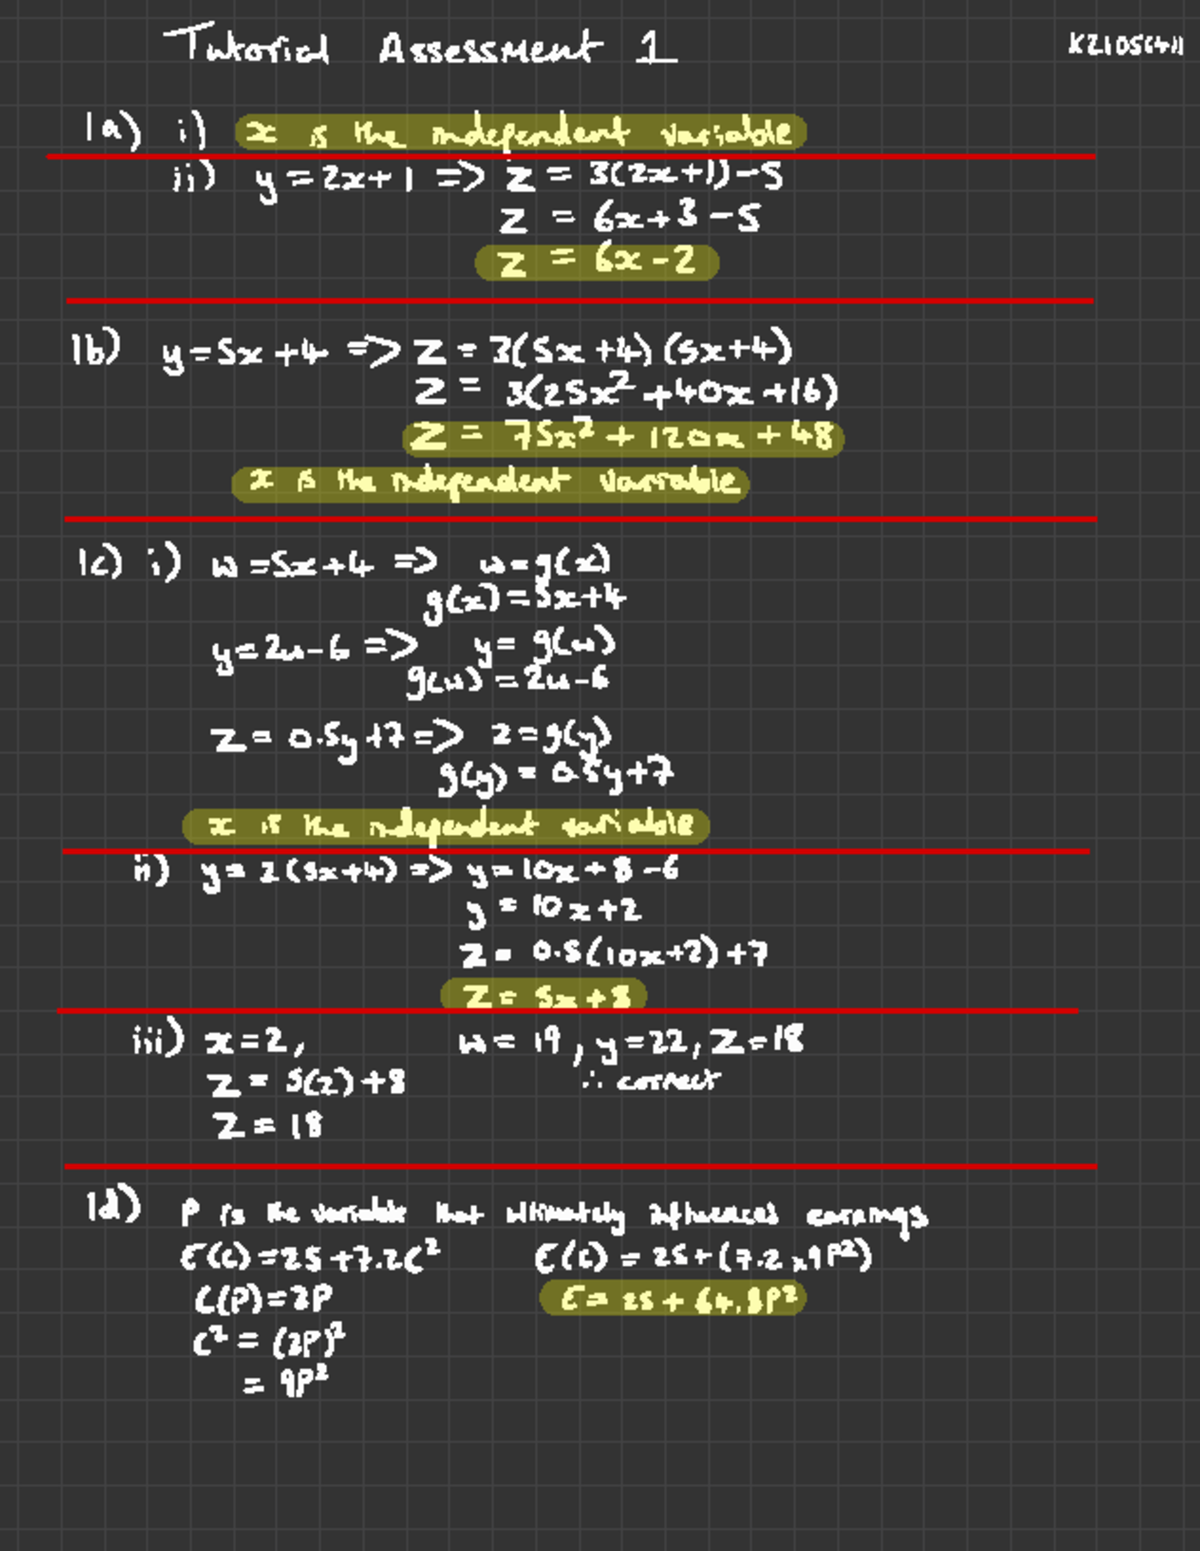 Tutorial Assessment 1
1a) i) x is the independent variable
ii) y = 2x + 1 => z = 3(2x+1)) - 5
z = 6x + 3 - 5
z = 6x - 2
1b) y = 5x + 4 => z = 3(5x + 4) (5x+4)
z = 3(25x² + 40x + 16)
z = 75x² + 120x + 48
x is the independent variable
1c) i) w = 5x + 4 => w = g(x)
g(x) = 5x+4
y = 2u - 6 => y = g(w)
g(u) = 2u - 6
z = 0.5y + 7 => z = g(y)
g(y) = 0.5y + 7
x is the independent variable
ii) y = 2(5x+4) => y = 10x + 8 - 6
y = 10x + 2
z = 0.5(10x+2) + 7
z = 5x + 8
iii) x = 2, w = 19, y = 22, z = 18
z = 5(2) + 8 ∴ correct
z = 18
1d) P is the variable that ultimately influences earnings
E(C) = 25 + 7.2C² E(C) = 25 + (7.2 x 9P²)
C(P) = 3P E = 25 + 64.8P²
C² = (3P)²
= 9P²